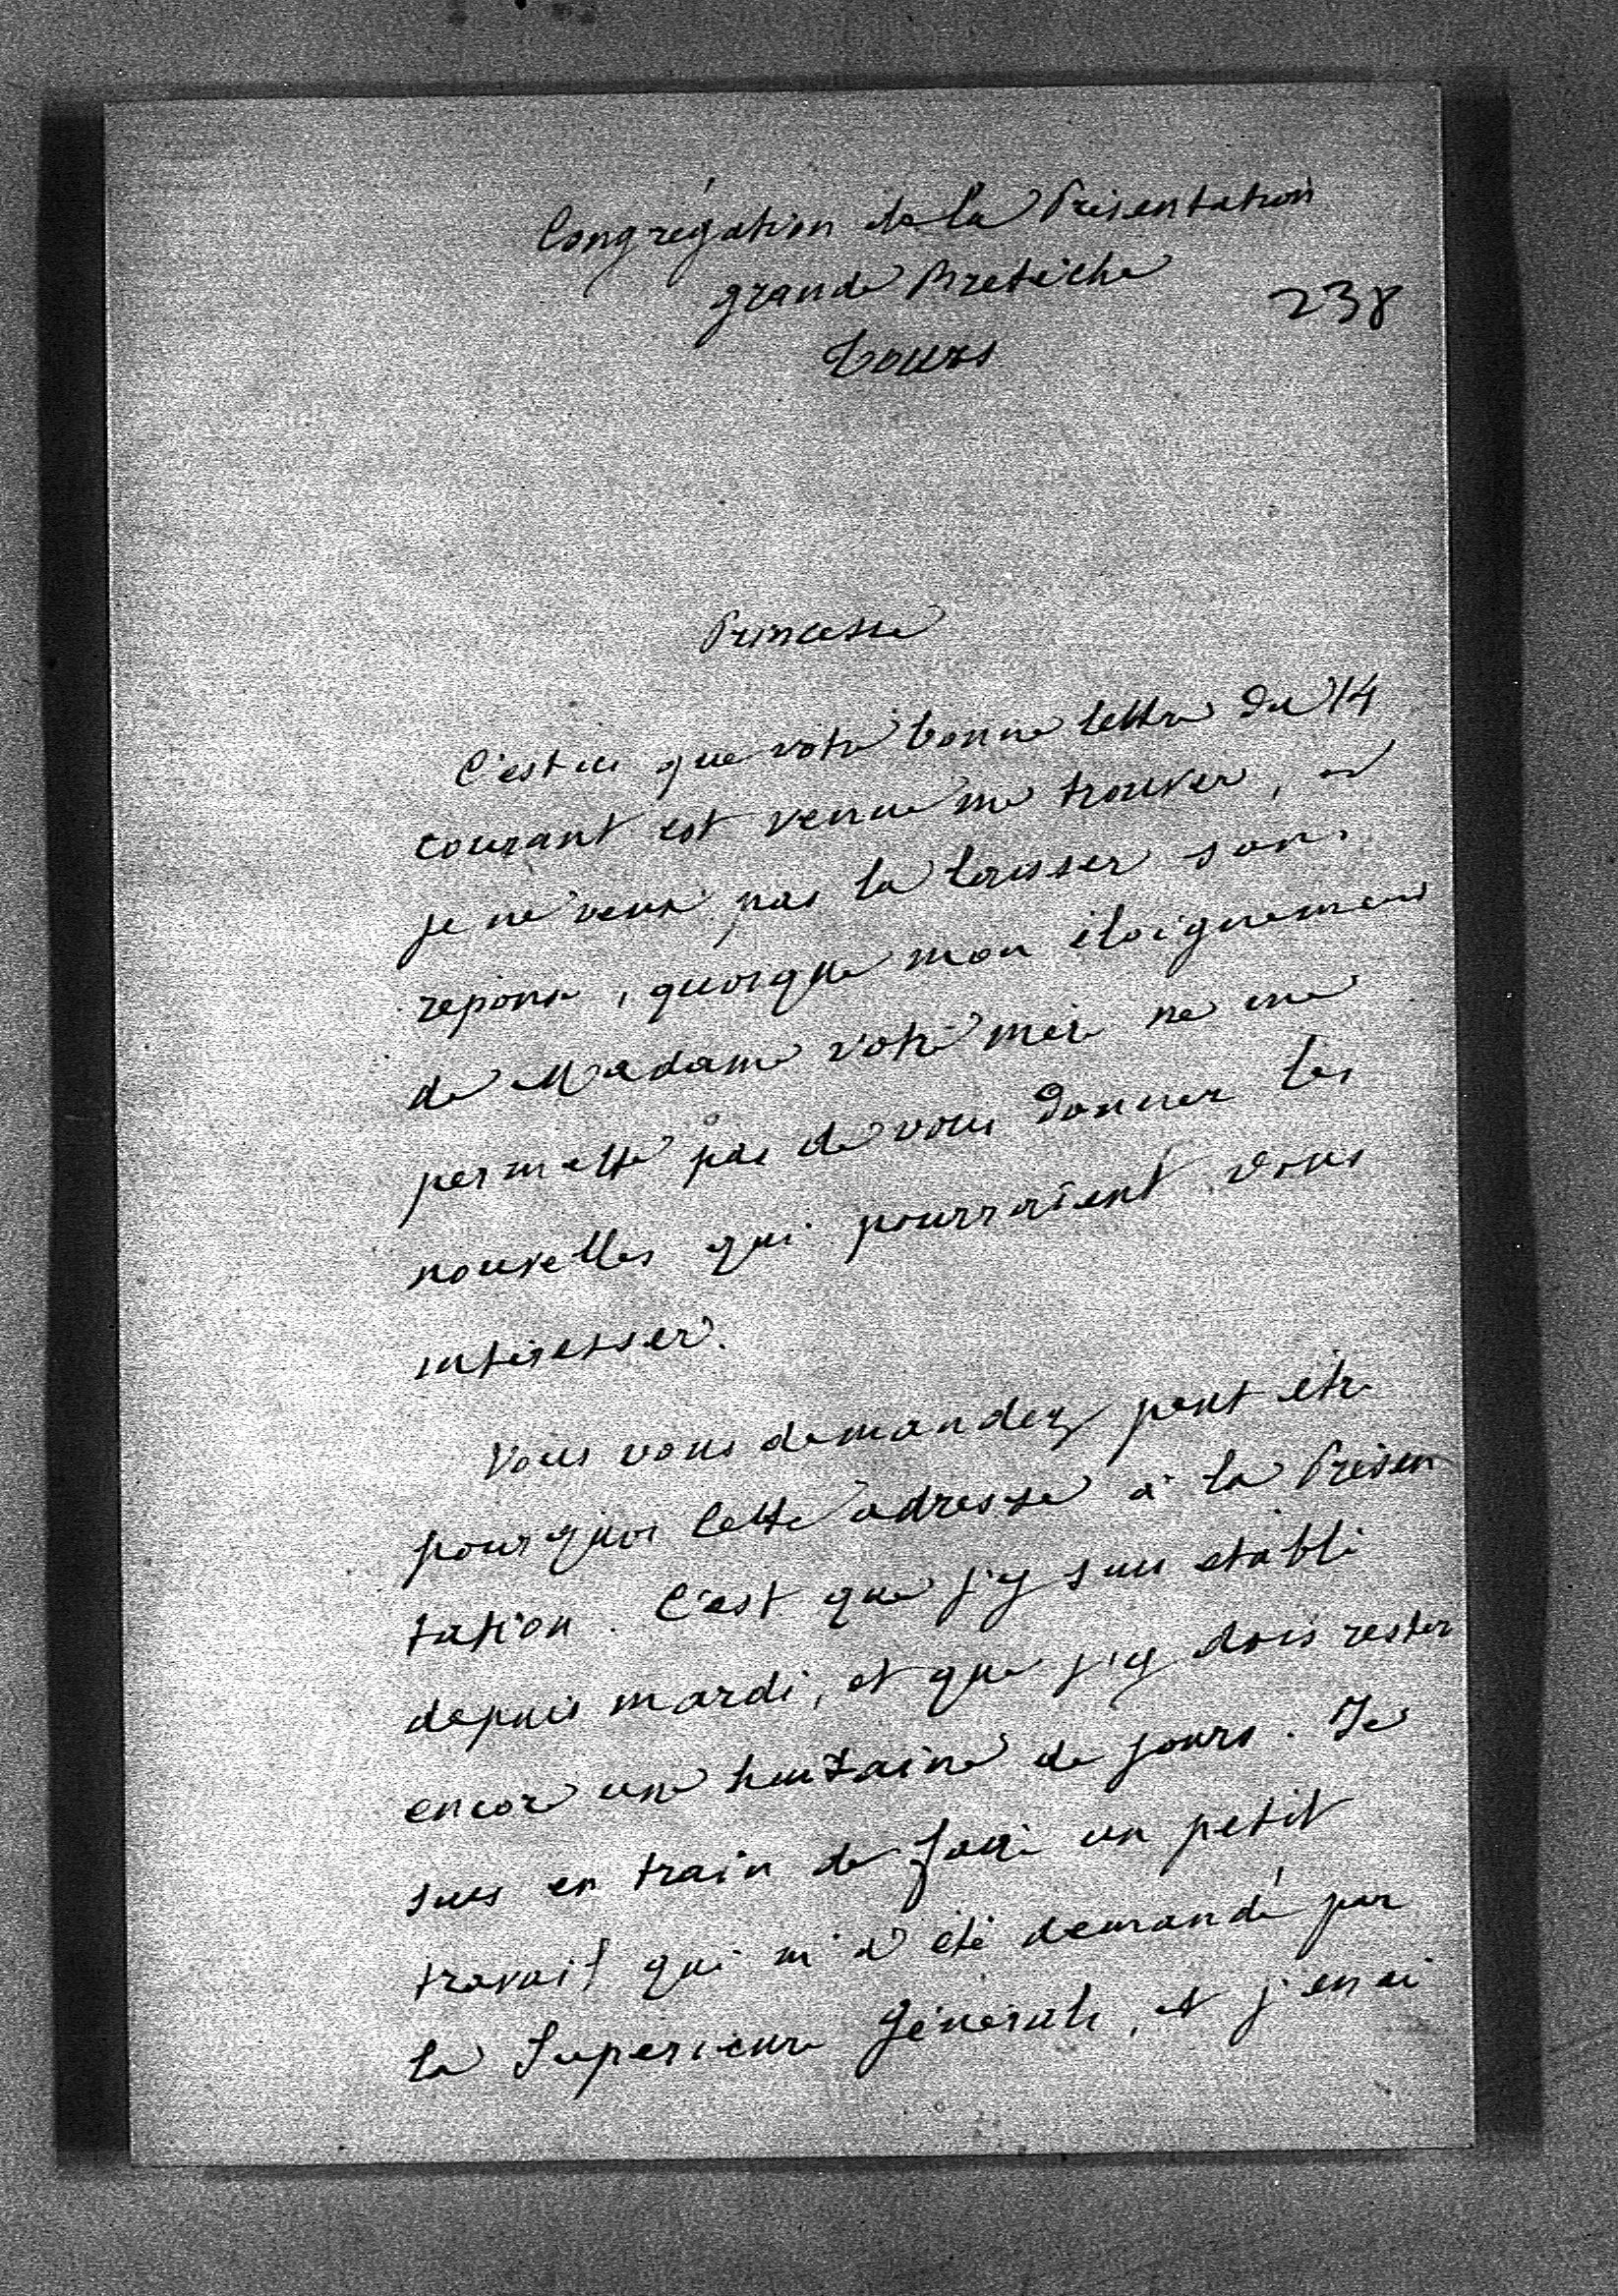 Congrégation de la Présentation
grande Bretèche
238
Tours
Princesse
C'est ici que votre bonne lettre du 14
courant est venue me trouver, et
je ne veux pas la laisser sans
reponse, quoique mon éloignement
de Madame votre mère ne me
permette pas de vous donner les
nouvelles qui pourraient vous
intéresser.
Vous vous demandez peut être
pourquoi cette adresse à la Présen
tation. C'est que j'y suis etabli
depuis mardi, et que j'y dois rester
encore une huitaine de jours. Je
suis en train de faire un petit
travail qui m'a été demandé par
la Superieure Générale, et j'en ai